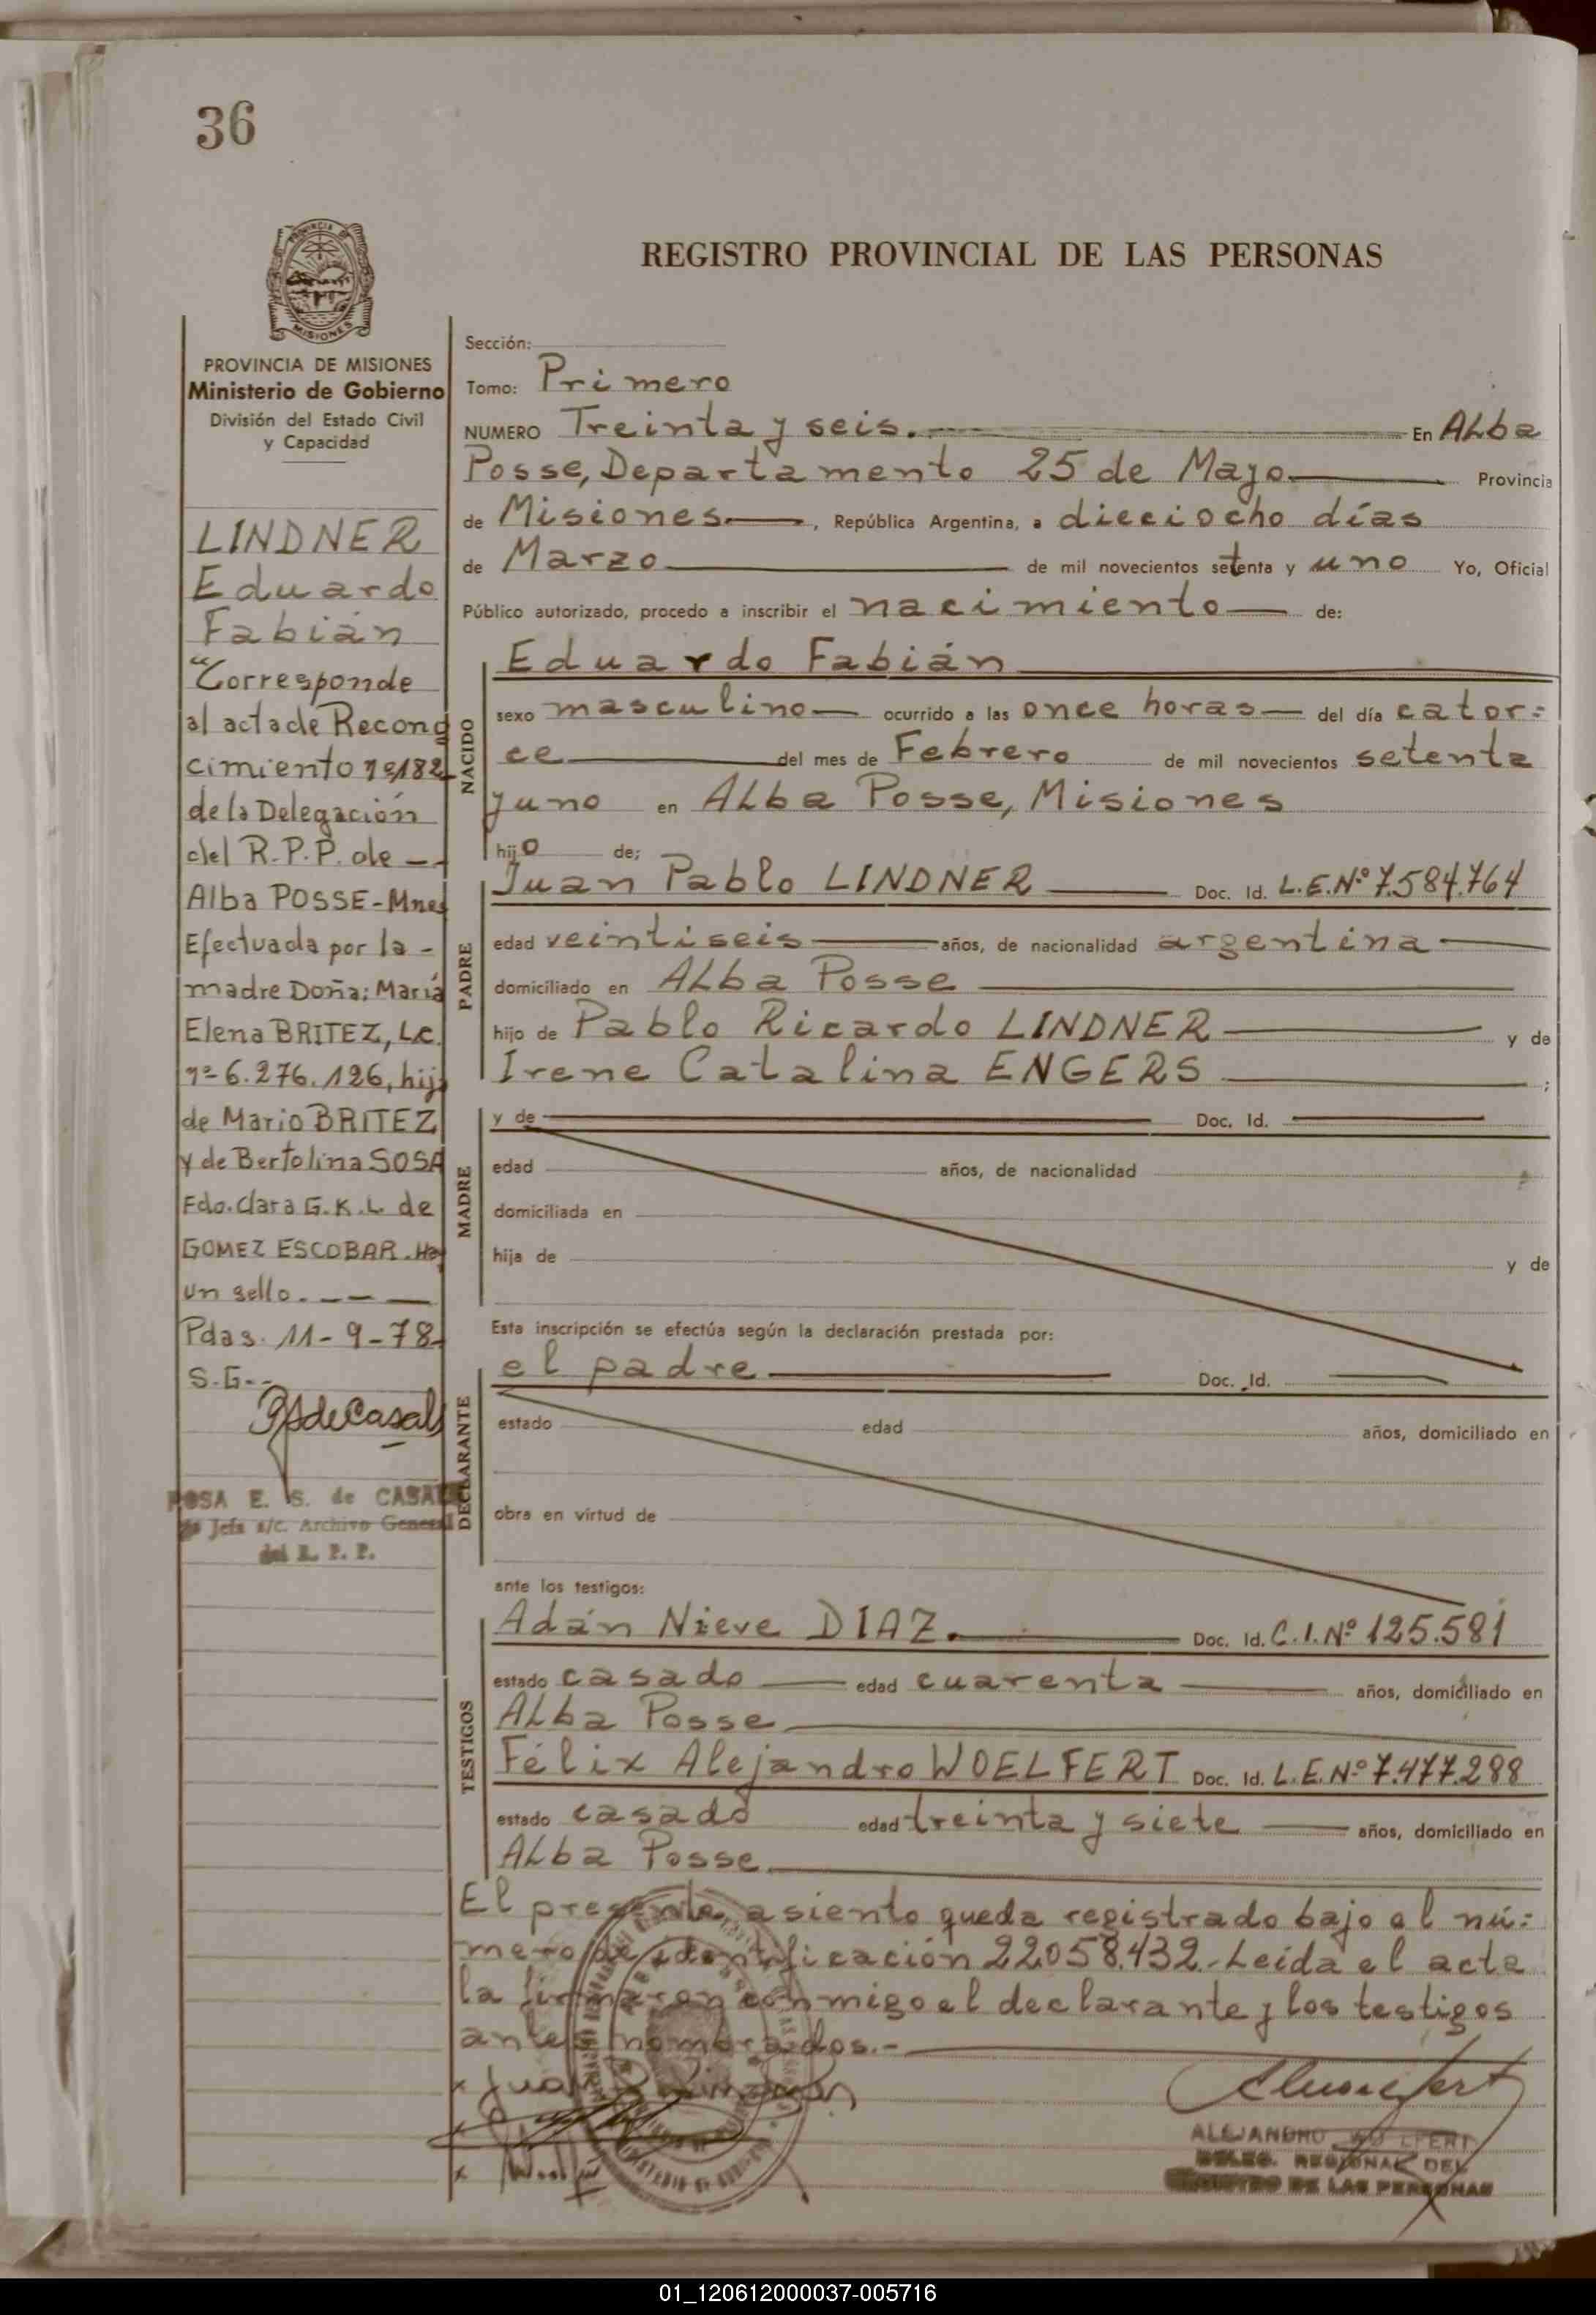 36
PROVINCIA DE
MISIONES
REGISTRO PROVINCIAL DE LAS PERSONAS
PROVINCIA DE MISIONES
Ministerio de Gobierno
División del Estado Civil
y Capacidad
LINDNER
Eduardo
Fabián
"Corresponde
al acta de Recono
cimiento nº 182
de la Delegación
del R.P.P. de
Alba POSSE-Mnes
Efectuada por la -
madre Doña: María
Elena BRITEZ, L.C.
nº 6.276.126, hija
de Mario BRITEZ
y de Bertolina SOSA
Fdo. Clara G.K.L. de
GOMEZ ESCOBAR. Hay
un sello.
Pdas. 11-9-78-
S.G.-
ROSA E. S. de CASALS
Jefa a/c. Archivo General
del R. P. P.
Sección:
Tomo: Primero
NUMERO Treinta y seis. En ALba
Posse, Departamento 25 de Mayo Provincia
de Misiones, República Argentina, a dieciocho días
de Marzo de mil novecientos setenta y uno Yo, Oficial
Público autorizado, procedo a inscribir el nacimiento de:
NACIDO
Eduardo Fabián
sexo masculino ocurrido a las once horas del día cator=
ce del mes de Febrero de mil novecientos setenta
y uno en ALba Posse, Misiones
hijo de;
PADRE
Juan Pablo LINDNER Doc. Id. L.E.Nº 7.584.764
edad veintiseis años, de nacionalidad argentina
domiciliado en ALba Posse
hijo de Pablo Ricardo LINDNER y de
Irene Catalina ENGERS ;
MADRE
y de Doc. Id.
edad años, de nacionalidad
domiciliada en
hija de y de
Esta inscripción se efectúa según la declaración prestada por:
DECLARANTE
el padre Doc. Id.
estado edad años, domiciliado en
obra en virtud de
ante los testigos:
TESTIGOS
Adán Nieve DIAZ. Doc. Id. C.I.Nº 125.581
estado casado edad cuarenta años, domiciliado en
ALba Posse
Félix Alejandro WOELFERT Doc. Id. L.E.Nº 7.477.288
estado casado edad treinta y siete años, domiciliado en
ALba Posse
El presente asiento queda registrado bajo el nú=
mero de identificación 22.058.432.- Leída el acta
la firmaron conmigo el declarante y los testigos
antes nombrados.-
ALEJANDRO WOELFERT
DELEG. REGIONAL DEL
REGISTRO DE LAS PERSONAS
01_120612000037-005716